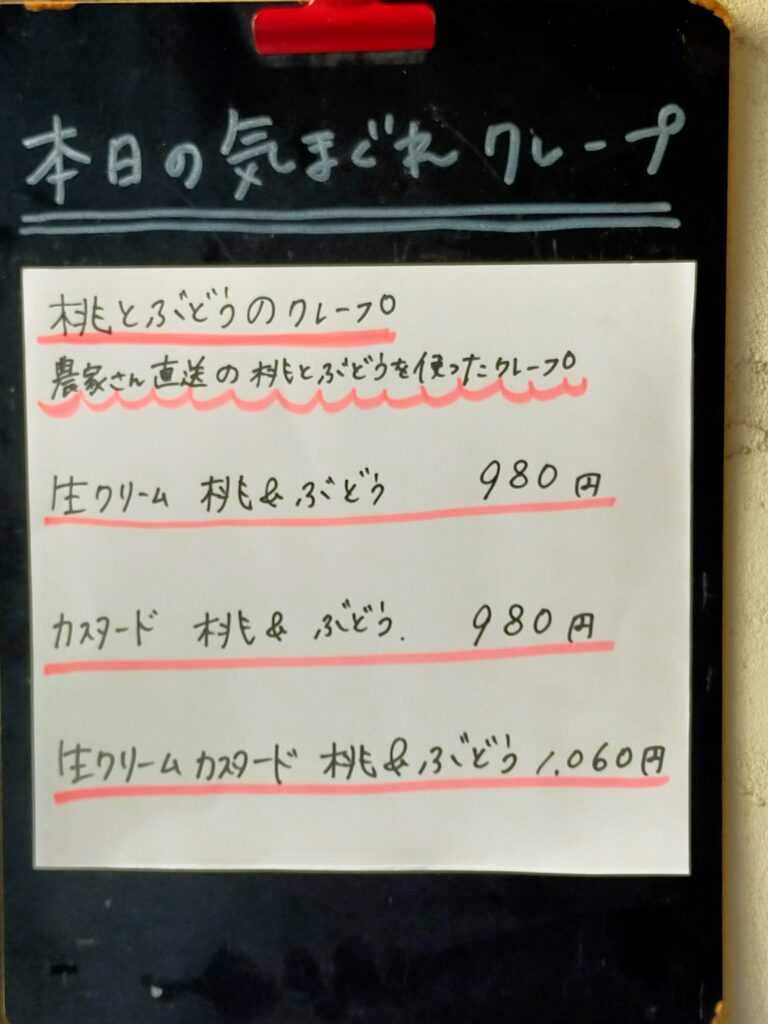 本日の気まぐれクレープ
桃とぶどうのクレープ
農家さん直送の桃とぶどうを使ったクレープ
生クリーム 桃&ぶどう 980円
カスタード 桃&ぶどう. 980円
生クリームカスタード 桃&ぶどう 1.060円